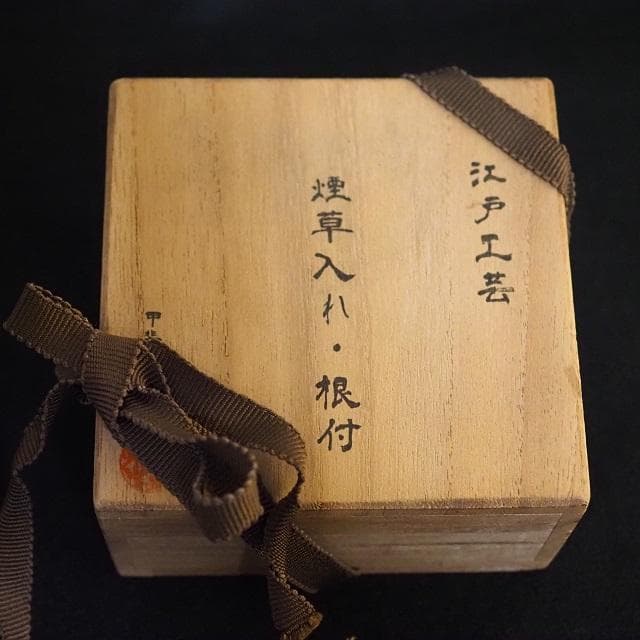 江戸工芸
煙草入れ・根付
甲